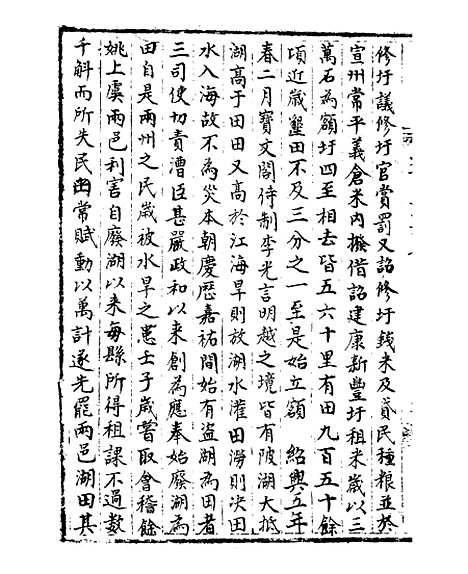 修圩議修圩官賞罰又詔修圩錢米及貸民種粮並於
宣州常平義倉米内撥借詔建康新豐圩租米嵗以三
萬石為額圩四至相去皆五六十里有田九百五十餘
頃近嵗墾田不及三分之一至是始立額　紹興五年
春二月寶文閣侍制李光言明越之境皆有陂湖大抵
湖高于田田又高於江海旱則放湖水灌田澇則决田
水入海故不為災本朝慶歴嘉祐間始有盗湖為田者
三司使切責漕臣甚嚴政和以来創為應奉始廢湖為
田自是兩州之民嵗被水旱之患壬子嵗嘗取會稽餘
姚上虞兩邑利害自廢湖以来每縣所得租課不過數
千斛而所失民田常賦動以萬計遂先罷兩邑湖田其